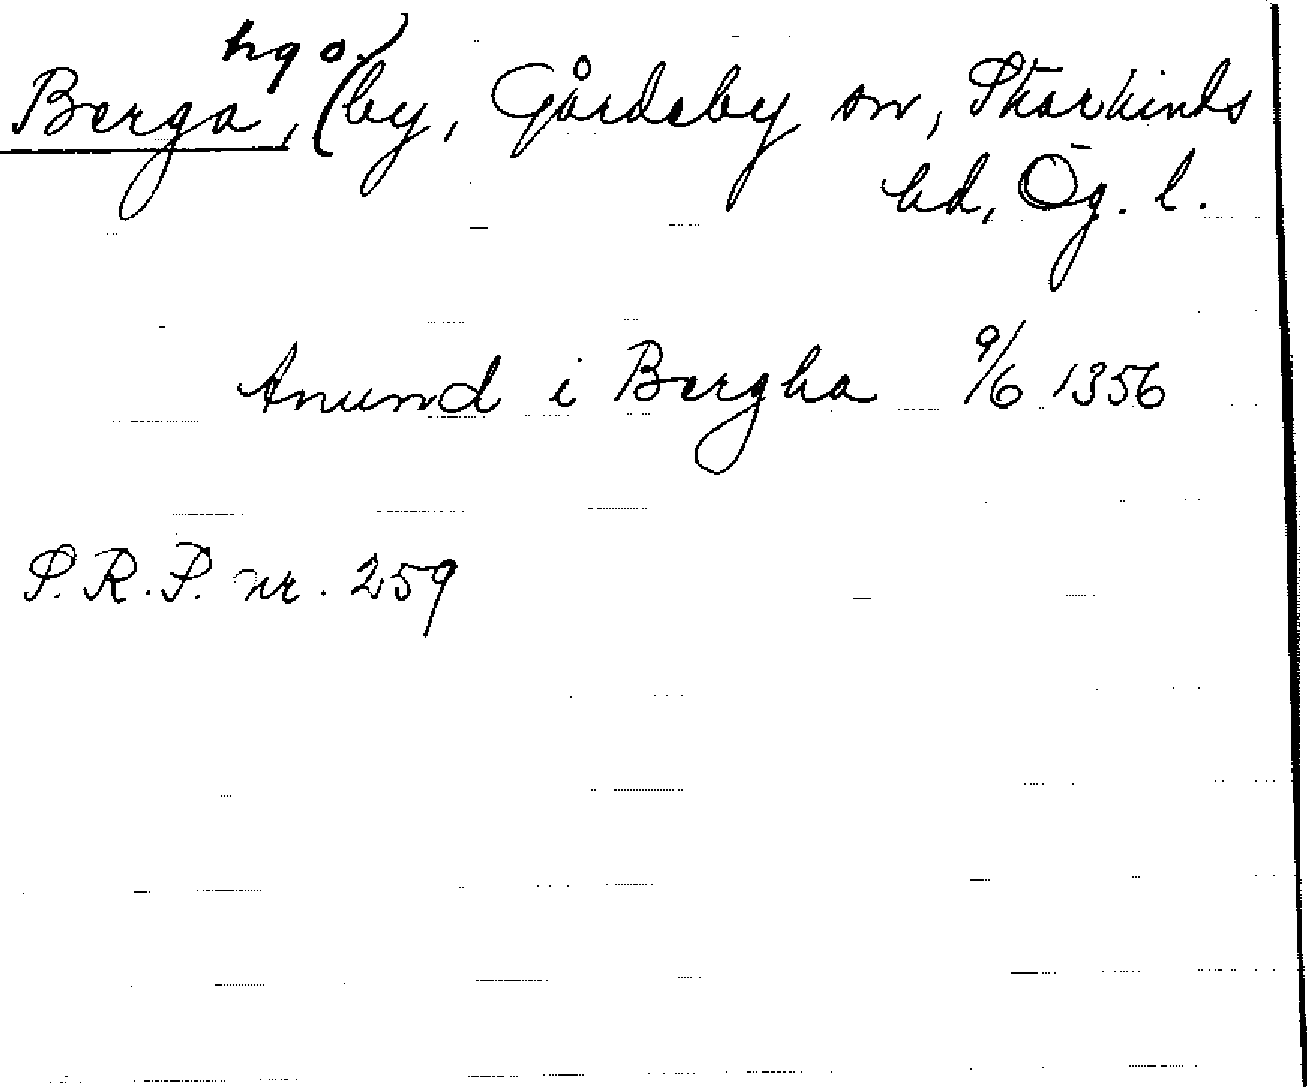 hgo)
Berga, (by, Gårdeby sn, Skärkinds
hd, Ög. l.
Anund i Bergha 9/6 1356
S.R.P. nr. 259